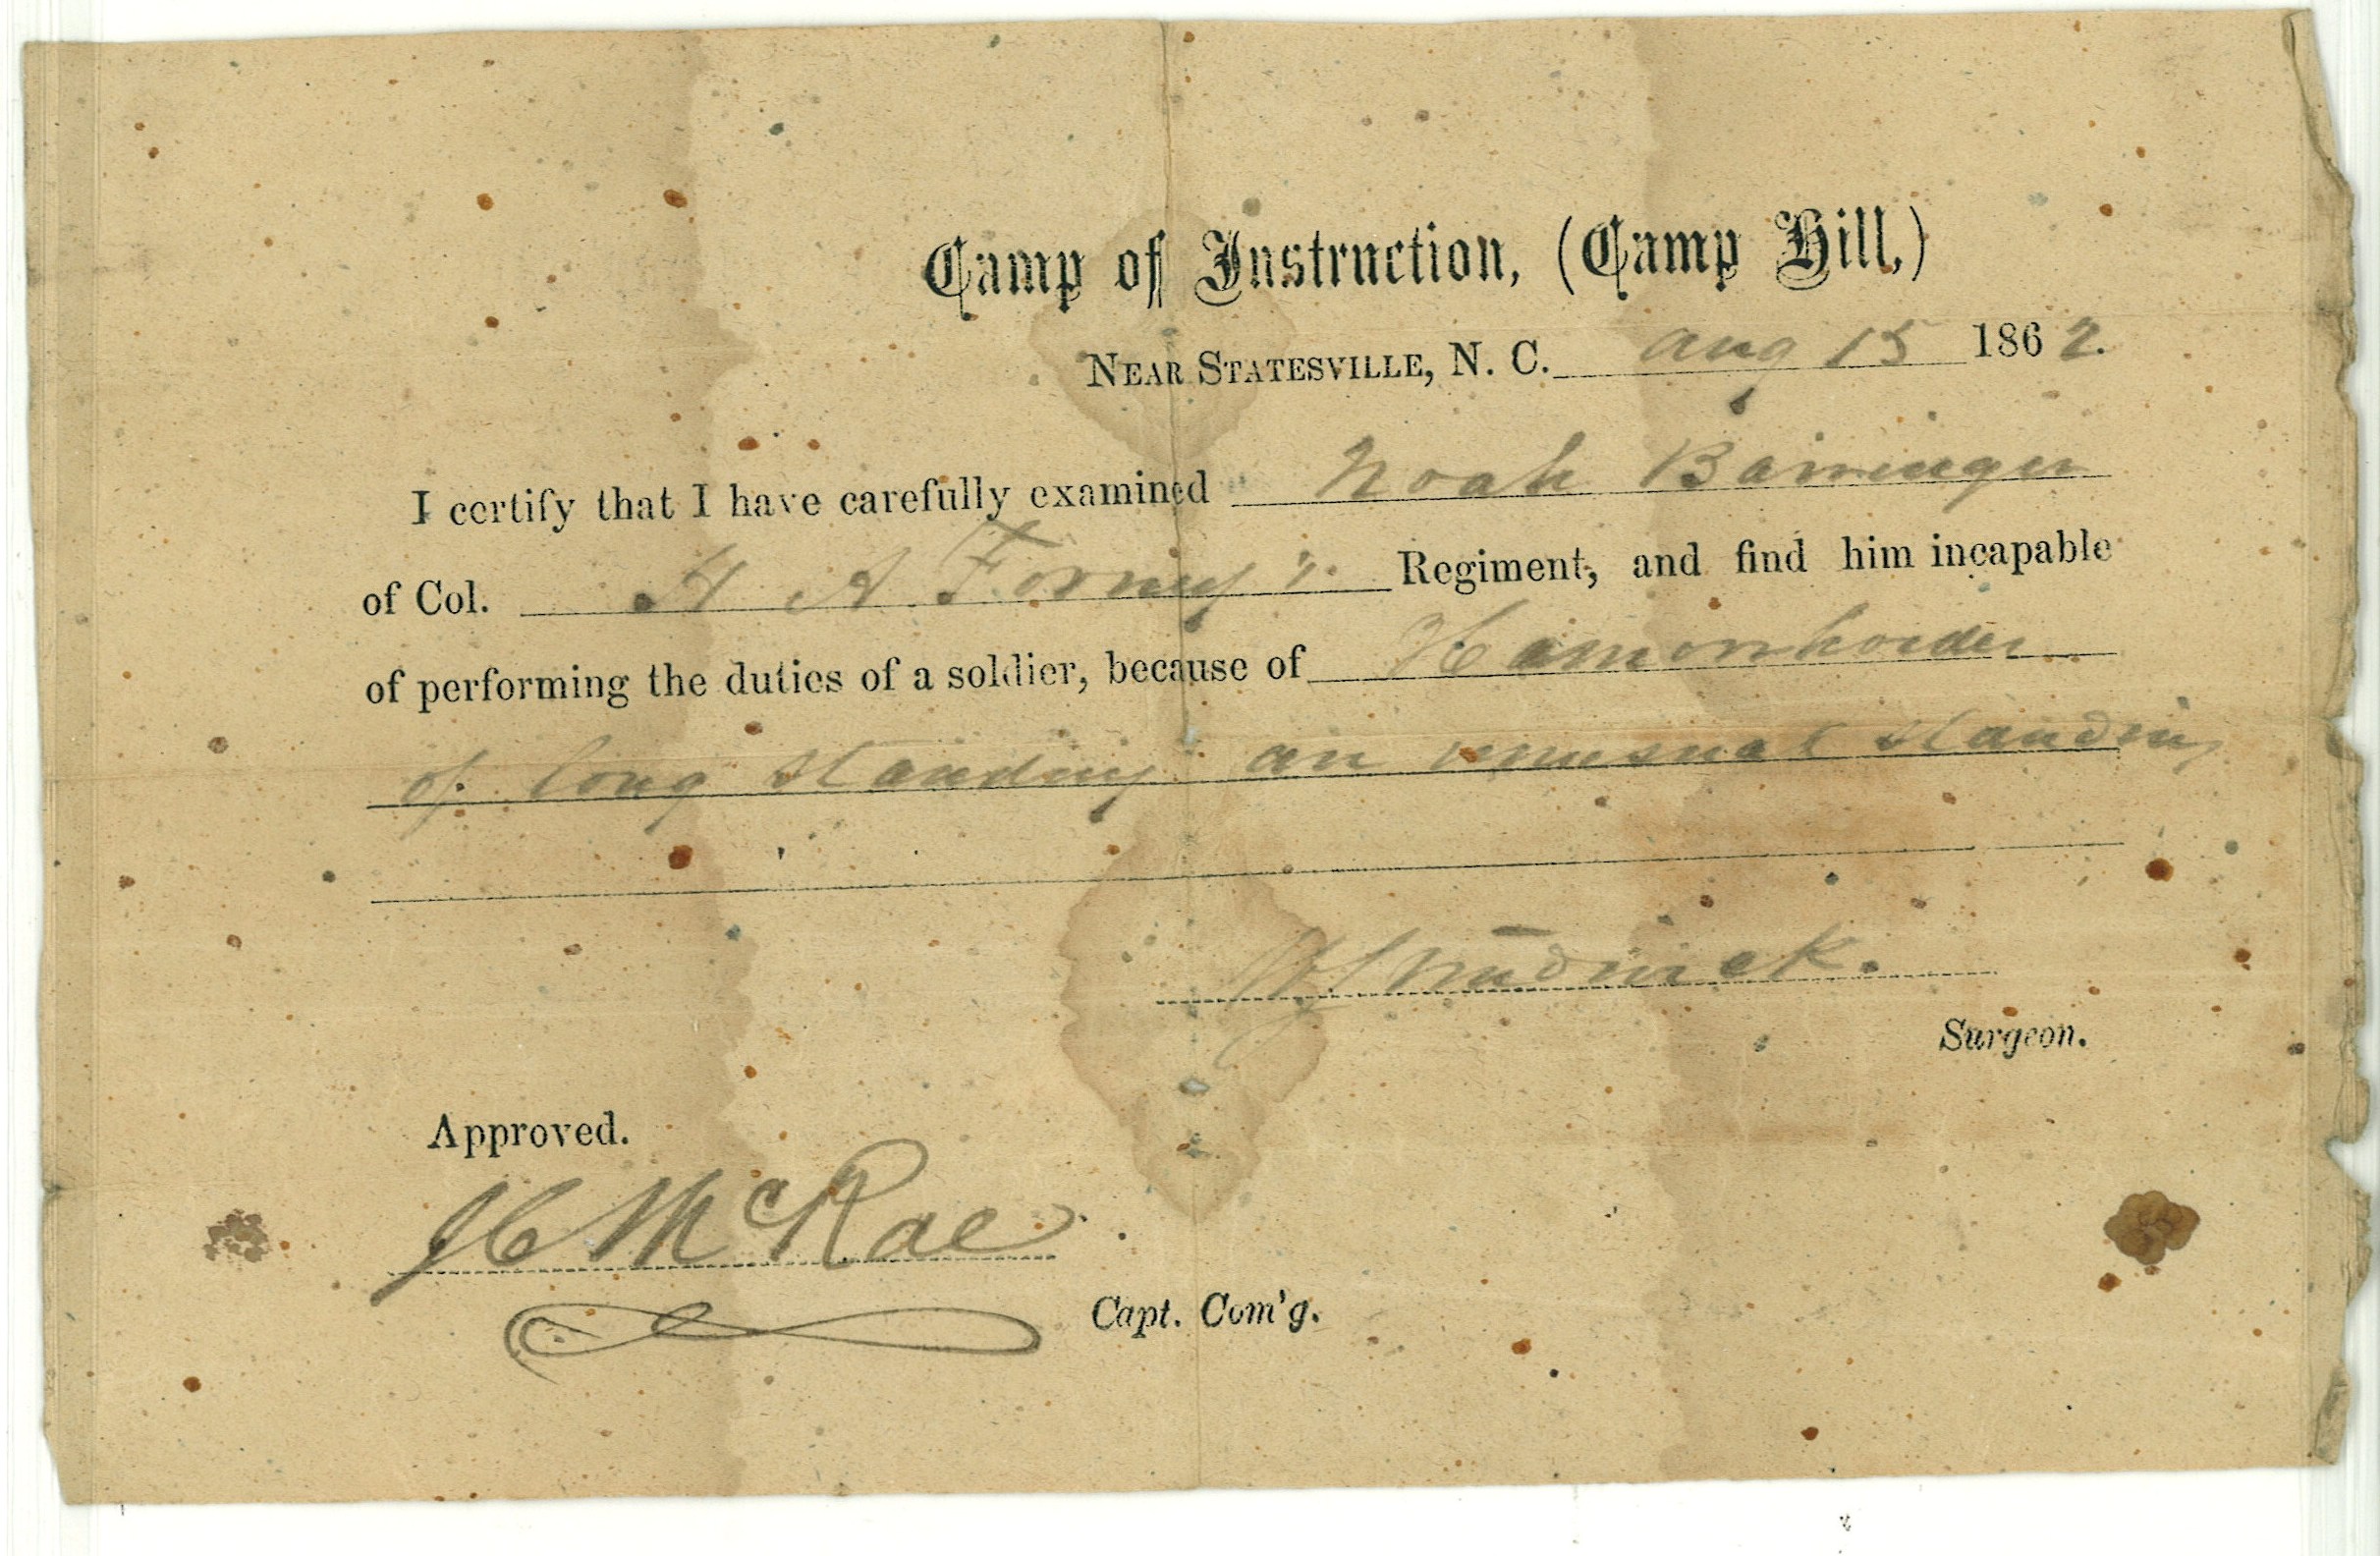 Camp of Instruction, (Camp Hill,)
Near Statesville, N. C. Aug 15 1862.
I certify that I have carefully examined Noah Barringer
of Col. H A Forney's Regiment, and find him incapable
of performing the duties of a soldier, because of Hamorrhoides
of long standing an unusual standing
Surgeon.
Approved.
J C McRae
Capt. Com'g.